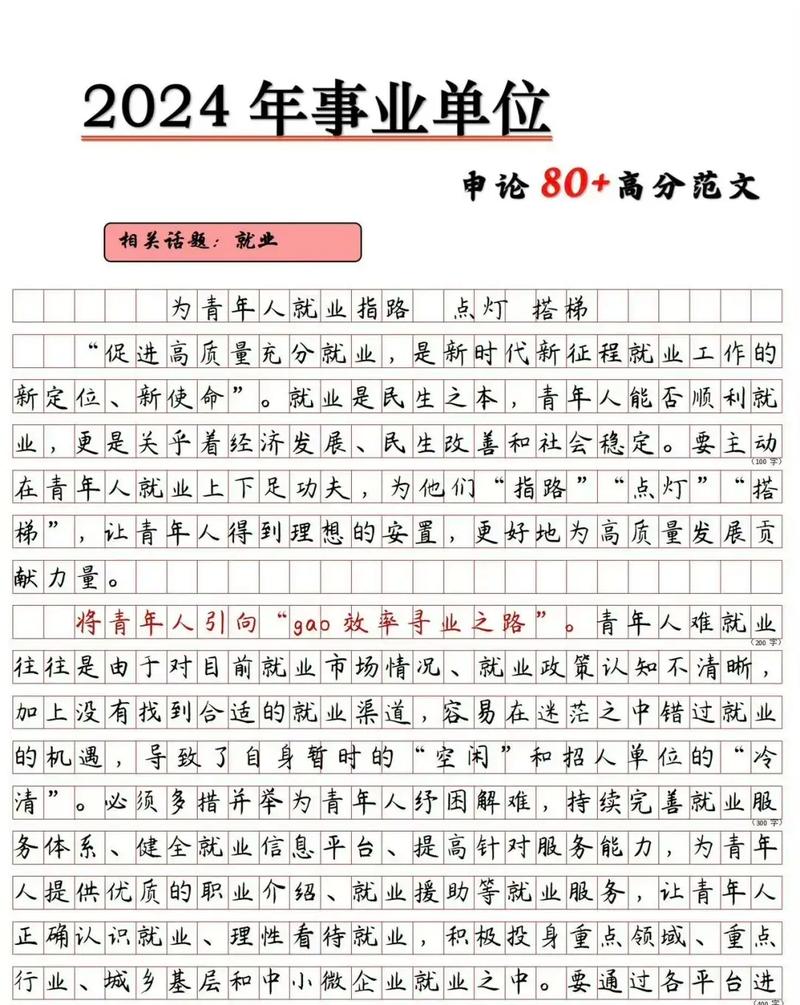 2024 年事业单位
申论 80+高分范文
相关话题：就业
为青年人就业指路 点灯 搭梯
“促进高质量充分就业，是新时代新征程就业工作的
新定位、新使命”。就业是民生之本，青年人能否顺利就
业，更是关乎着经济发展、民生改善和社会稳定。要主动
（100 字）
在青年人就业上下足功夫，为他们“指路”“点灯”“搭
梯”，让青年人得到理想的安置，更好地为高质量发展贡
献力量。
将青年人引向“gao效率寻业之路”。青年人难就业
（200 字）
往往是由于对目前就业市场情况、就业政策认知不清晰，
加上没有找到合适的就业渠道，容易在迷茫之中错过就业
的机遇，导致了自身暂时的“空闲”和招人单位的“冷
清”。必须多措并举为青年人纾困解难，持续完善就业服
（300 字）
务体系、健全就业信息平台、提高针对服务能力，为青年
人提供优质的职业介绍、就业援助等就业服务，让青年人
正确认识就业、理性看待就业，积极投身重点领域、重点
行业、城乡基层和中小微企业就业之中。要通过各平台进
（400 字）